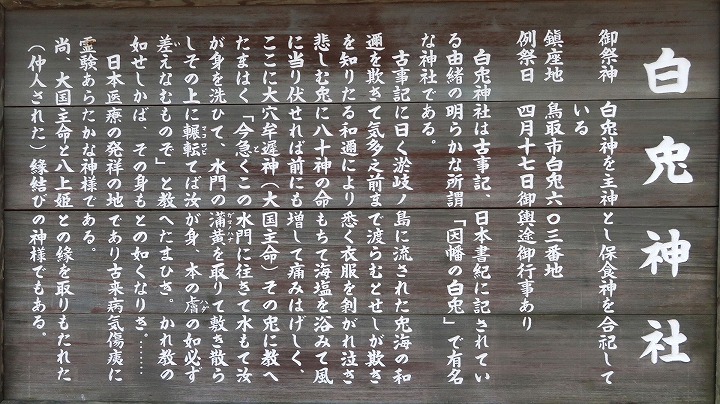 白兎神社
御祭神　白兎神を主神とし保食神を合祀して
いる
鎮座地　鳥取市白兎六〇三番地
例祭日　四月十七日御輿途御行事あり
白兎神社は古事記、日本書紀に記されてい
る由緒の明らかな所謂「因幡の白兎」で有名
な神社である。
古事記に曰く淤岐ノ島に流された兎海の和
邇を欺きて気多之前まで渡らむとせしが欺き
を知りたる和邇により悉く衣服を剥がれ泣き
悲しむ兎に八十神の命もちて海塩を浴みて風
に当り伏せれば前にも増して痛みはげしく、
ここに大穴牟遅神（大国主命）その兎に教へ
たまはく「今急くこの水門に往きて水もて汝
が身を洗ひて、水門の蒲黄を取りて敷き散ら
しその上に輾転てば汝が身　本の膚の如必ず
差えなむものぞ」と教へたまひき。かれ教の
如せしかば、その身もとの如くなりき。……
日本医療の発祥の地であり古来病気傷痍に
霊験あらたかな神様である。
尚、大国主命と八上姫との縁を取りもたれた
（仲人された）縁結びの神様でもある。